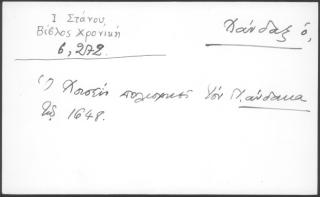 Ι Στάνου,
Βίβλος Χρονική
6, 272.
Χάνδαξ ὁ,
πολιορκεῖ τὸν Χάνδακα
τῷ 1648.